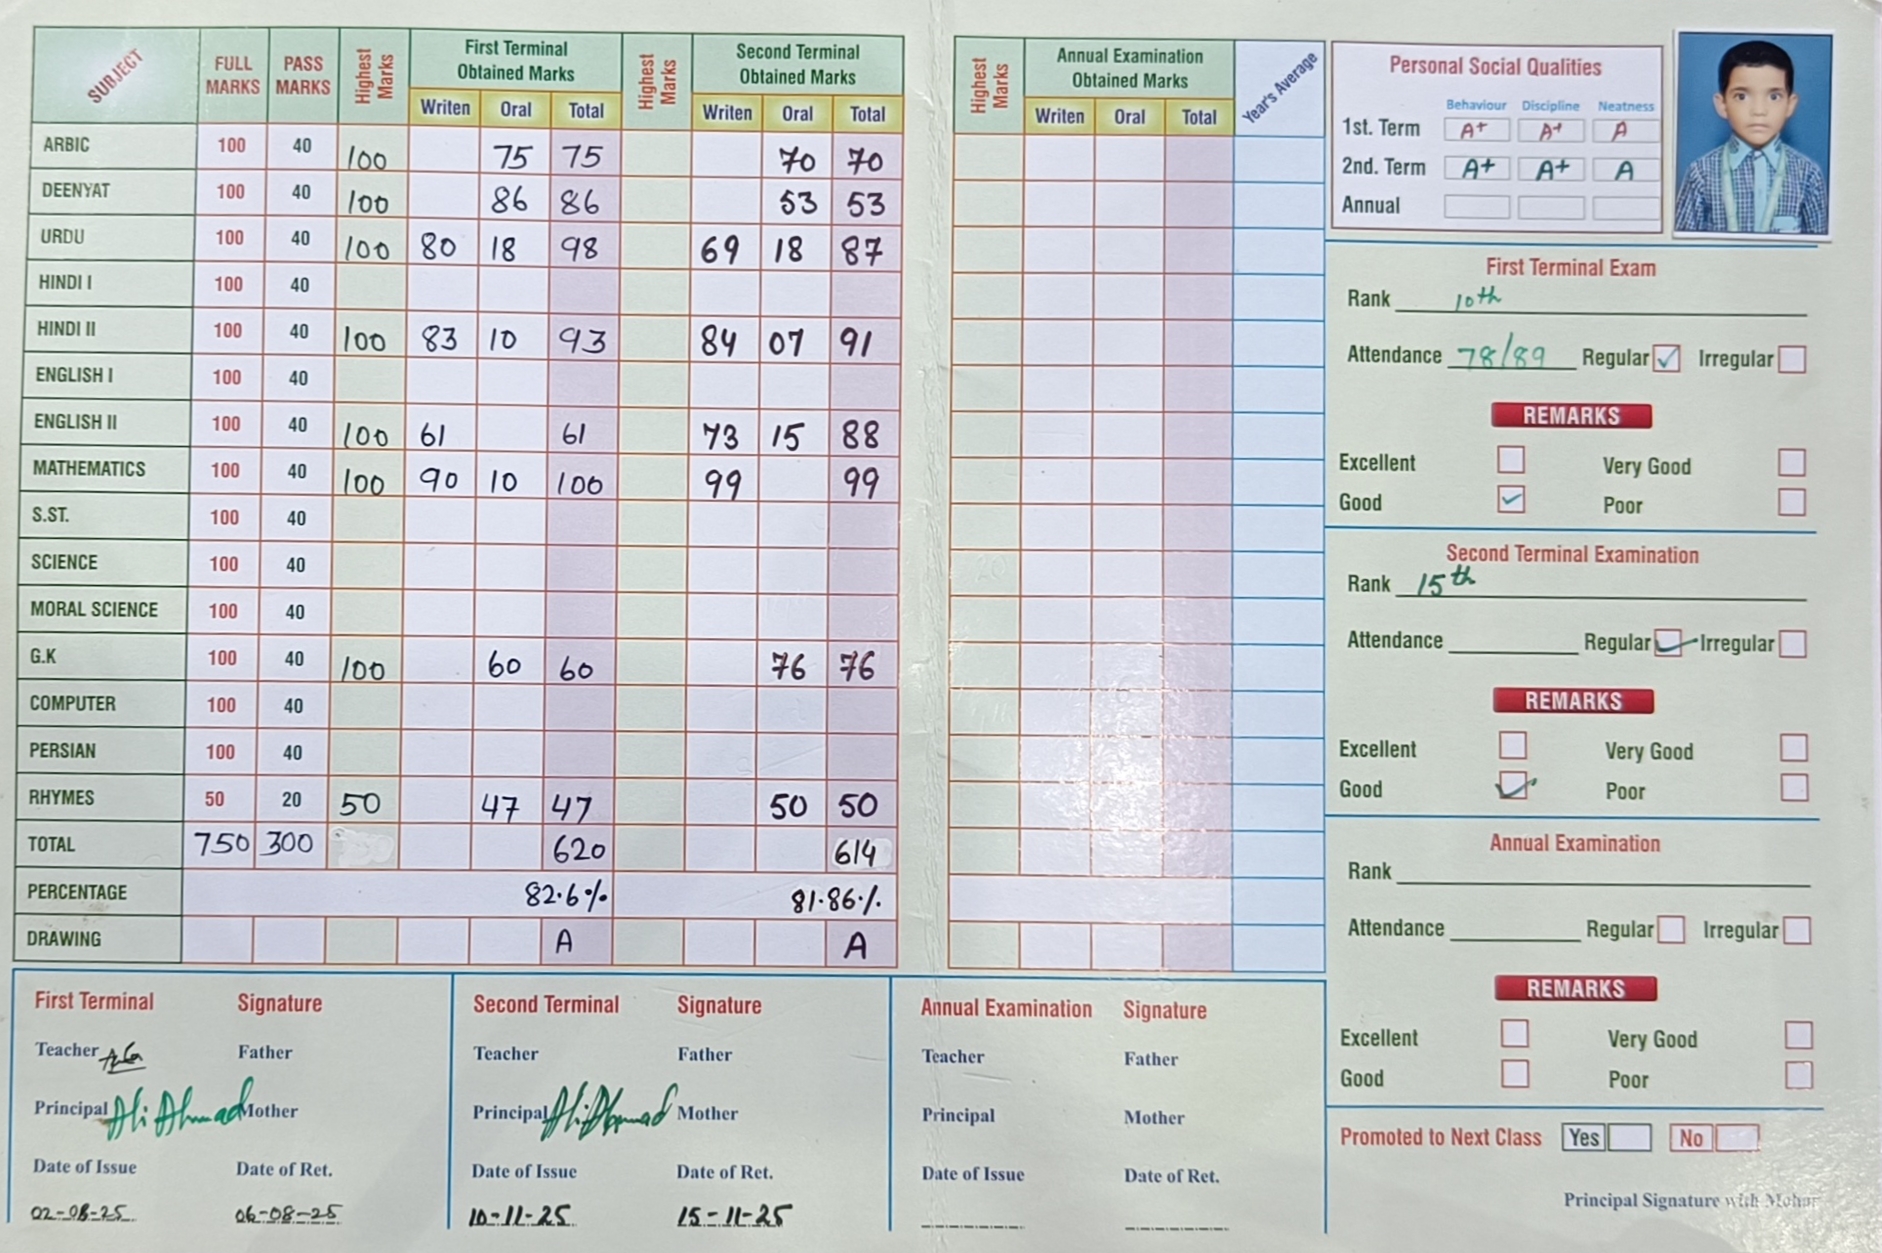 SUBJECT FULL MARKS PASS MARKS Highest Marks First Terminal Obtained Marks Writen Oral Total Highest Marks Second Terminal Obtained Marks Writen Oral Total
ARBIC 100 40 100 75 75 70 70
DEENYAT 100 40 100 86 86 53 53
URDU 100 40 100 80 18 98 69 18 87
HINDI I 100 40
HINDI II 100 40 100 83 10 93 84 07 91
ENGLISH I 100 40
ENGLISH II 100 40 100 61 61 73 15 88
MATHEMATICS 100 40 100 90 10 100 99 99
S.ST. 100 40
SCIENCE 100 40
MORAL SCIENCE 100 40
G.K 100 40 100 60 60 76 76
COMPUTER 100 40
PERSIAN 100 40
RHYMES 50 20 50 47 47 50 50
TOTAL 750 300 620 614
PERCENTAGE 82.6% 81.86%
DRAWING A A
Highest Marks Annual Examination Obtained Marks Writen Oral Total Year's Average
Personal Social Qualities
Behaviour Discipline Neatness
1st. Term A+ A+ A
2nd. Term A+ A+ A
Annual
First Terminal Exam
Rank 10th
Attendance 78/89 Regular ✓ Irregular
REMARKS
Excellent Very Good
Good ✓ Poor
Second Terminal Examination
Rank 15th
Attendance Regular ✓ Irregular
REMARKS
Excellent Very Good
Good ✓ Poor
Annual Examination
Rank
Attendance Regular Irregular
REMARKS
Excellent Very Good
Good Poor
Promoted to Next Class Yes No
Principal Signature with Mohar
First Terminal Signature
Teacher Father
Principal Ali Ahmad Mother
Date of Issue Date of Ret.
02-08-25 06-08-25
Second Terminal Signature
Teacher Father
Principal Ali Ahmad Mother
Date of Issue Date of Ret.
10-11-25 15-11-25
Annual Examination Signature
Teacher Father
Principal Mother
Date of Issue Date of Ret.